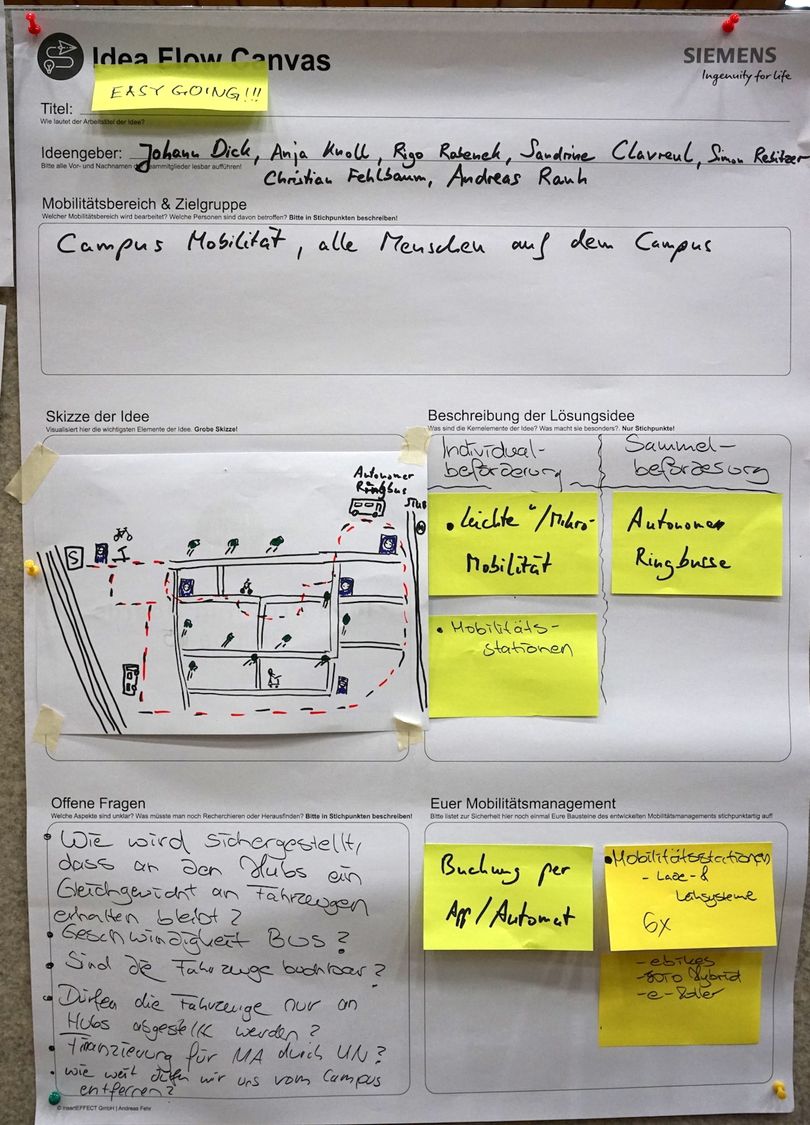 Idea Flow Canvas
SIEMENS
Ingenuity for life
EASY GOING!!!
Titel:
Wie lautet der Arbeitstitel der Idee?
Ideengeber: Johann Dick, Anja Knoll, Rigo Rabenek, Sandrine Clavreul, Simon Rebitzer
Bitte alle Vor- und Nachnamen lesbar aufführen!
Christian Fehlbaum, Andreas Rauh
Mobilitätsbereich & Zielgruppe
Welcher Mobilitätsbereich wird bearbeitet? Welche Personen sind davon betroffen? Bitte in Stichpunkten beschreiben!
Campus Mobilität, alle Menschen auf dem Campus
Skizze der Idee
Visualisiert hier die wichtigsten Elemente der Idee. Grobe Skizze!
Autonomer
Ringbus
S
Beschreibung der Lösungsidee
Was sind die Kernelemente der Idee? Was macht sie besonders?. Nur Stichpunkte!
Individual-
beförderung
Sammel-
beförderung
• "leichte"/Mikro-
Mobilität
Autonomer
Ringbusse
• Mobilitäts-
stationen
Offene Fragen
Welche Aspekte sind unklar? Was müsste man noch Recherchieren oder Herausfinden? Bitte in Stichpunkten beschreiben!
• Wie wird sichergestellt,
dass an den Hubs ein
Gleichgewicht an Fahrzeugen
erhalten bleibt?
• Geschwindigkeit Bus?
• Sind die Fahrzeuge buchbar?
• Dürfen die Fahrzeuge nur an
Hubs abgestellt werden?
• Finanzierung für MA durch UN?
• wie weit dürfen wir uns vom Campus
entfernen?
Euer Mobilitätsmanagement
Bitte listet zur Sicherheit hier noch einmal Eure Bausteine des entwickelten Mobilitätsmanagements stichpunktartig auf!
Buchung per
App/Automat
• Mobilitätsstationen
- Lade- &
Leihsysteme
6x
- ebikes
hybrid
© InsertEFFECT GmbH | Andreas Fehr